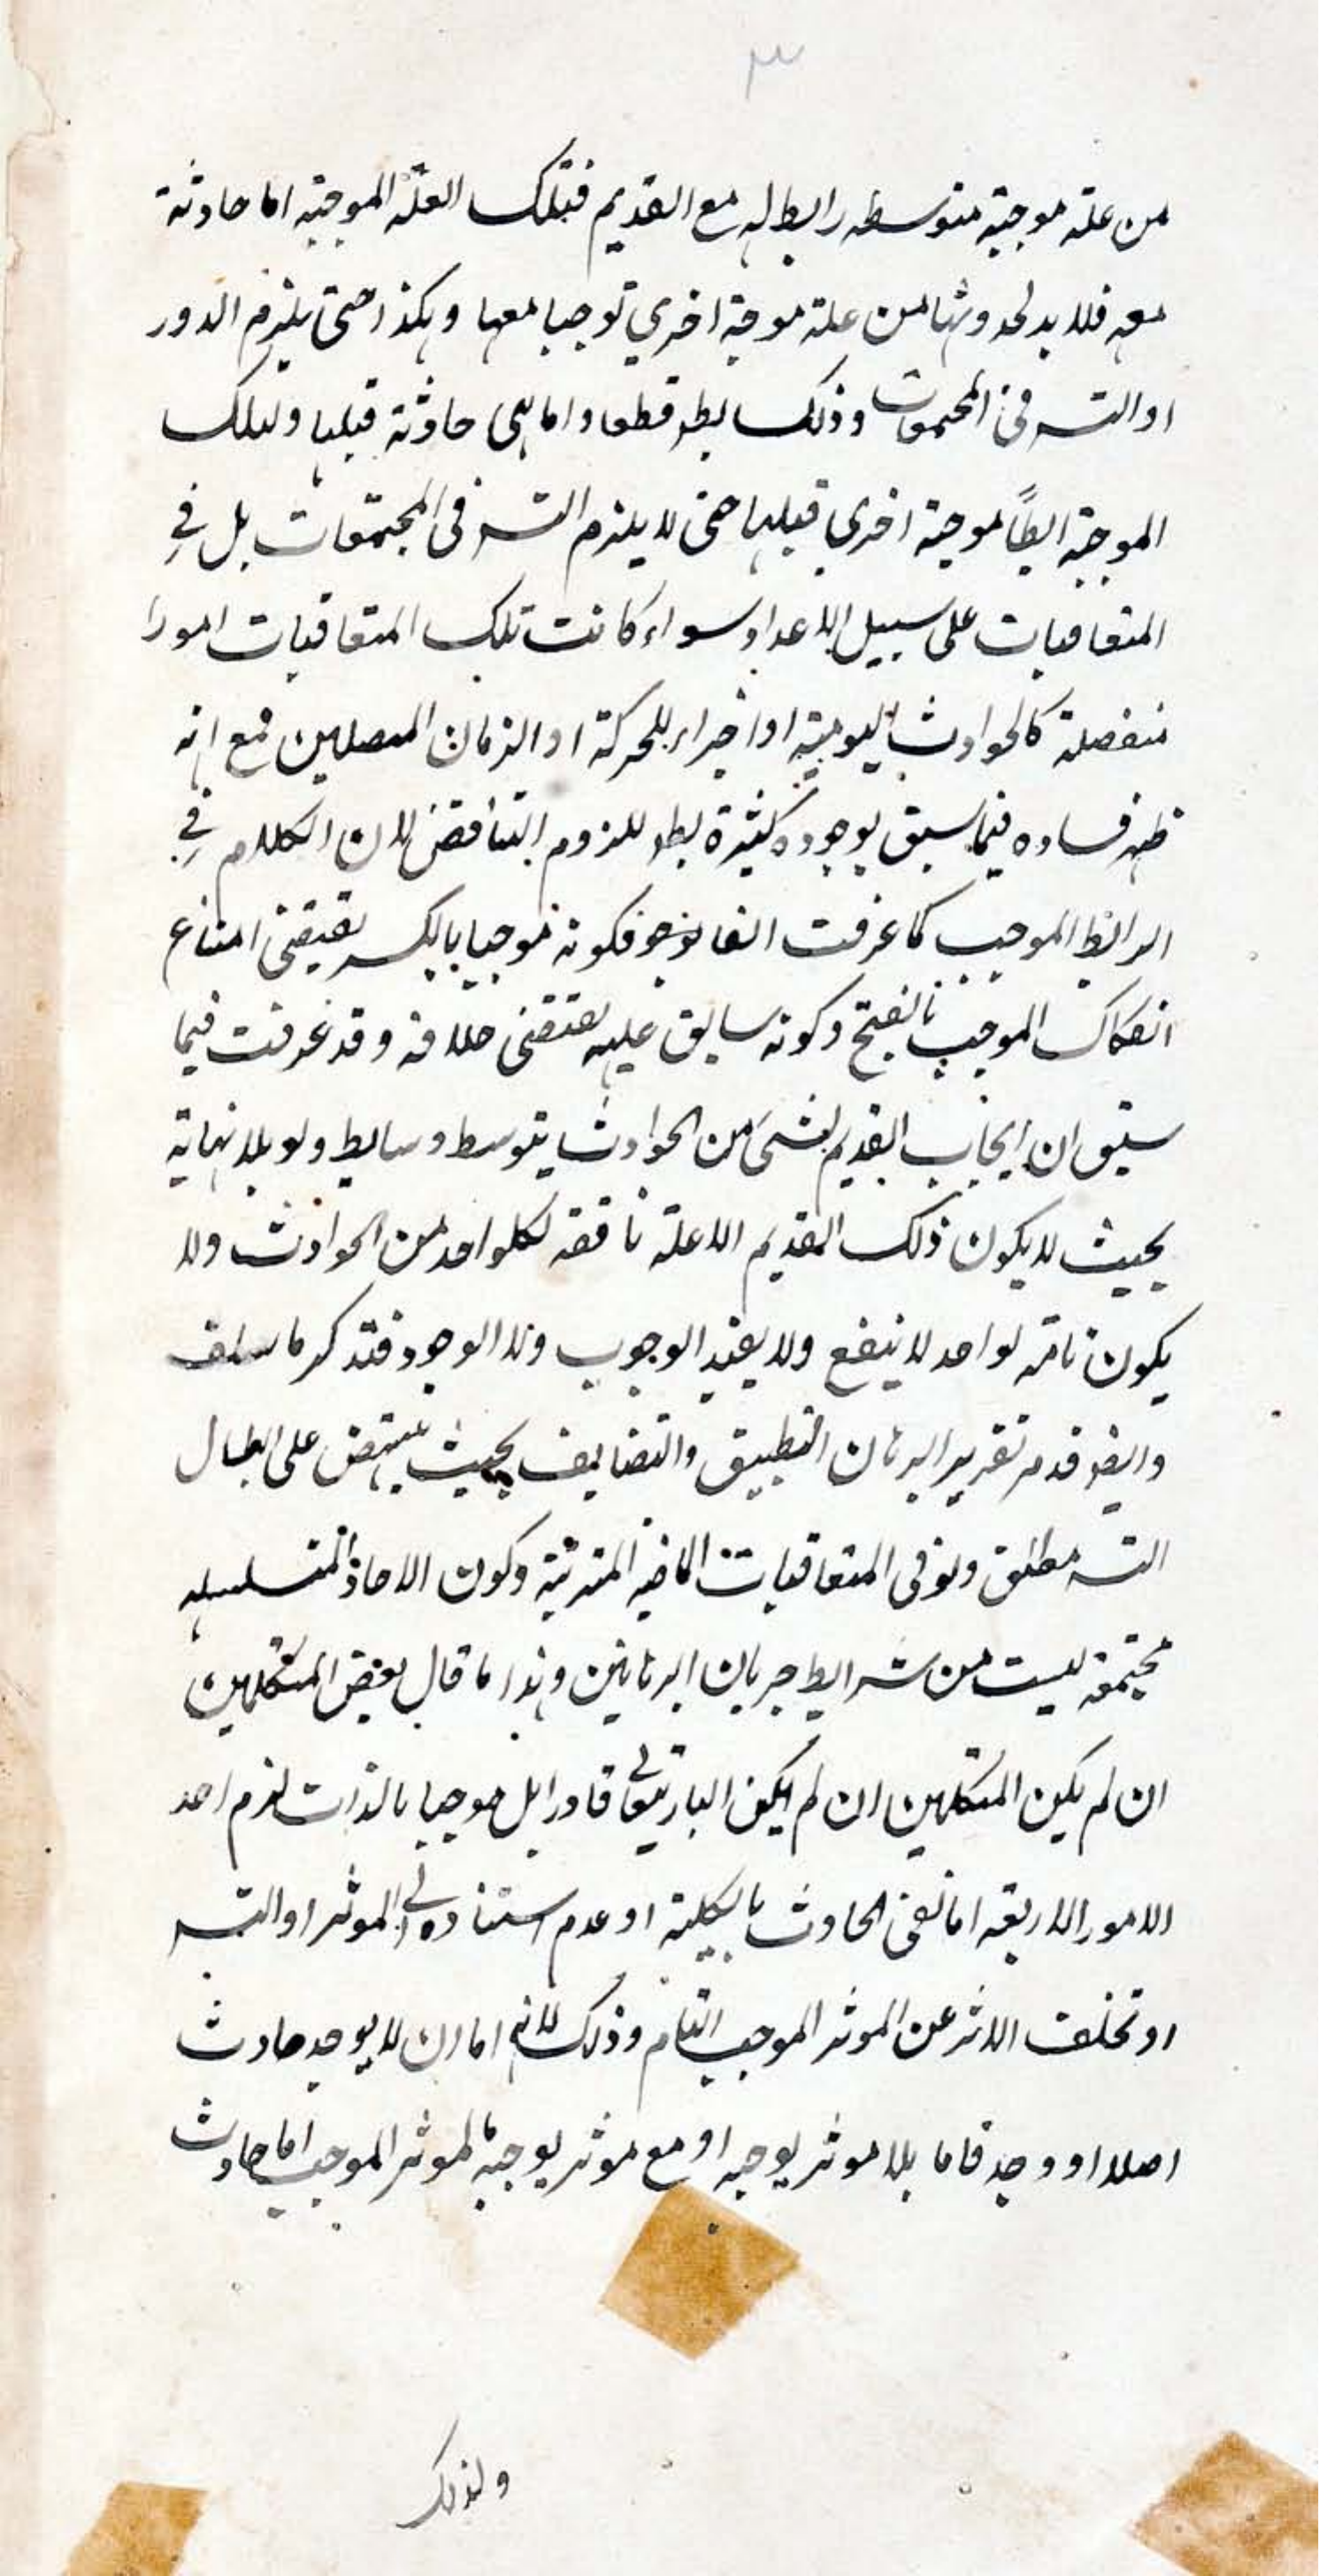 ٣
من علة موجبة متوسطه رابط له مع القديم فتلك العلّة الموجبه اما حادثة
معه فلا بد لحدوثها من علة موجبة اخري توجبها معها وهكذا حتى يلزم الدور
او التسـ في المجتمعات وذلك بط قطعا واما هي حادثة قبلها ولتلك
الموجبة ايضًا موجبة اخري قبلها حتى لا يلزم التسـ في المجتمعات بل في
المتعاقبات على سبيل الاعداد سواء كانت تلك المتعاقبات امورا
منفصلة كالحوادث اليومية او اجزاء للحركة او الزمان المتصلين فمع انه
ظهر فساده فيما سبق بوجوه كثيرة بط للزوم التناقض لان الكلام في
الرابط الموجب كما عرفت انفا فكونه موجبا بالكسر يقتضى امتناع
انفكاك الموجب بالفتح وكونه سابق عليه يقتضى خلافه وقد عرفت فيما
سبق ان ايجاب القديم لشئ من الحوادث بتوسط وسايط ولو بلا نهاية
بحيث لا يكون ذلك القديم الا علة ناقصه لكلواحد من الحوادث ولا
يكون تامة لواحد لا ينفع ولا يفيد الوجوب ولا الوجود فتذكر ما سلف
وايضا قد مر تقرير البرهان التطبيق والتضايف بحيث ينتهض على ابطال
التسـ مطلق ولو في المتعاقبات الماضيه المترتبة وكون الاحاد المتسلسله
مجتمعة ليست من شرايط جريان البرهانين وهذا ما قال بعض المتكلمين
ان لم يكن المتكلمين ان لم يكن الباريتعالى قادرا بل موجبا بالذات لزم احد
الامور الاربعة اما نفى الحادث بالكلية او عدم استناده الى الموثر او التسـ
او تخلف الاثر عن الموثر الموجب التام وذلك لانه اما ان لا يوجد حادث
اصلا او وجد فاما بلا موثر يوجبه او مع موثر يوجبه فالموثر الموجب اما حادث
ولذلك